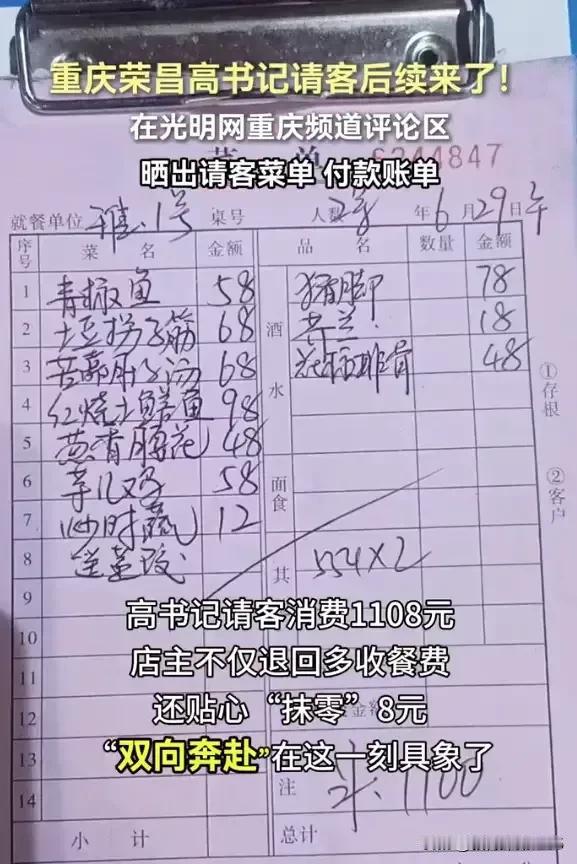 重庆荣昌高书记请客后续来了!
在光明网重庆频道评论区
晒出请客菜单 付款账单
就餐单位 雅.1号 桌号 人数 2桌 年 6 月 29 日 午
序号 菜 名 金额 品 名 数量 金额
1 青椒鱼 58 猪脚 78
2 68 酒水 芥兰 18
3 68 排骨 48
4 红烧土鳝鱼 98
5 葱香脑花 48
6 芋儿鸡 58 面食
7 炒时蔬 12
8 其 554×2
9
10
11
12 金额
13
14 注 1100
小 计 总计
①存根
②客户
高书记请客消费1108元
店主不仅退回多收餐费
还贴心“抹零”8元
“双向奔赴”在这一刻具象了